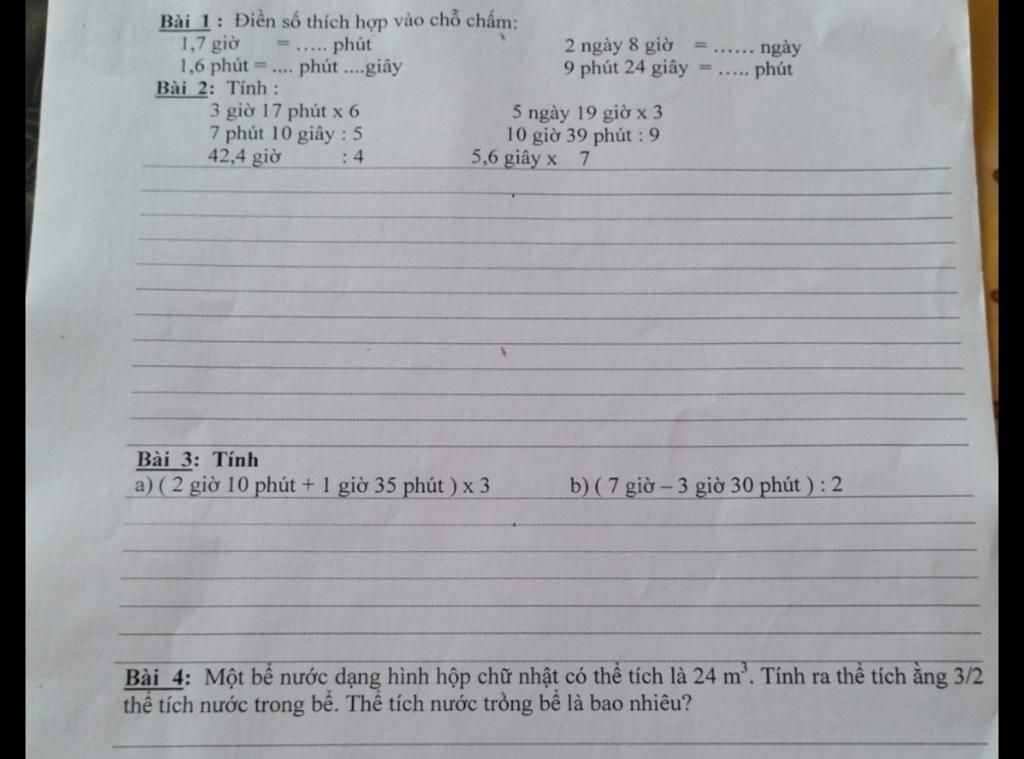 Bài 1 : Điền số thích hợp vào chỗ chấm:
1,7 giờ = ..... phút 2 ngày 8 giờ = ...... ngày
1,6 phút = .... phút ....giây 9 phút 24 giây = ..... phút
Bài 2: Tính :
3 giờ 17 phút x 6 5 ngày 19 giờ x 3
7 phút 10 giây : 5 10 giờ 39 phút : 9
42,4 giờ : 4 5,6 giây x 7
Bài 3: Tính
a) ( 2 giờ 10 phút + 1 giờ 35 phút ) x 3 b) ( 7 giờ – 3 giờ 30 phút ) : 2
Bài 4: Một bể nước dạng hình hộp chữ nhật có thể tích là 24 m³. Tính ra thể tích ằng 3/2
thể tích nước trong bể. Thể tích nước tròng bể là bao nhiêu?